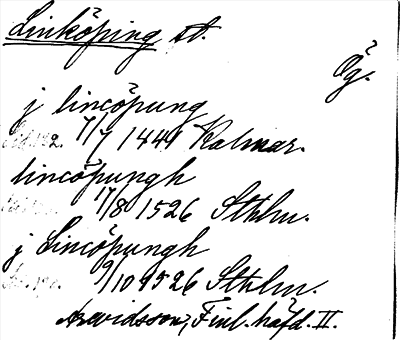 Linköping st.
Ög.
j lincöpung
7/7 1441 Kalmar.
lincöpungh
17/8 1526 Sthlm.
j Lincöpungh
9/10 1526 Sthlm.
Arwidsson, Finl. häfd. II.